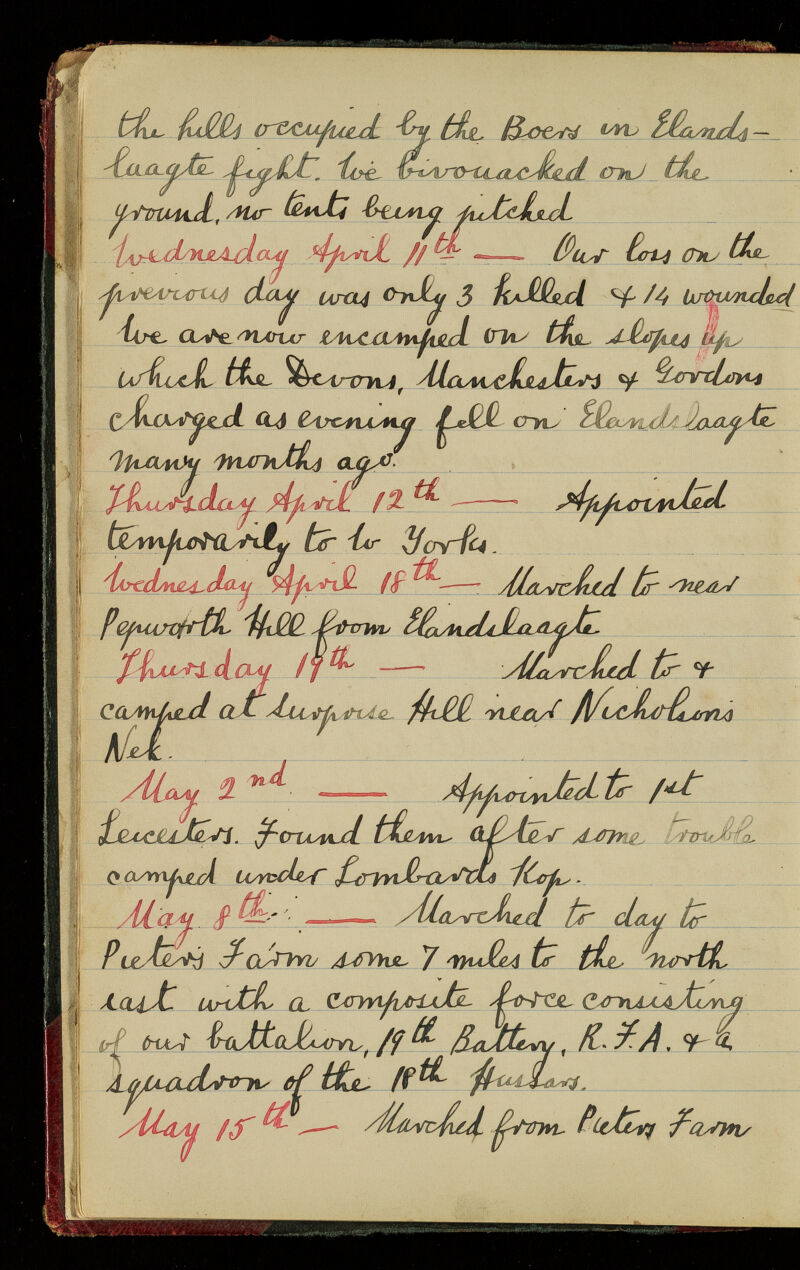 the hills occupied by the Boers in Elands-
laagte fight. We bivouacked on the
ground, no tents being pitched
Wednesday April 11th — Our loss on the
previous day was only 3 killed & 14 wounded
We are now encamped on the slopes up
which the Devons, Manchesters & Gordons
charged as evening fell on Elandslaagte
many months ago.
Thursday April 12th — Appointed
temporarily to W Yorks.
Wednesday April 18th — Marched to near
Pepworth Hill from Elandslaagte
Thursday 19th — Marched to &
camped at Surprise Hill near Nicholsons
Nek.
May 2nd — Appointed to 1st
Leicesters. Found them after some trouble
camped under Lombards Kop.
May 8th — Marched to day to
Pieters Farm some 7 miles to the north
east with a composite force consisting
of our battalion, 19th Battery, R.F.A. & a
squadron of the 18th Hussars.
May 15th — Marched from Pieters Farm